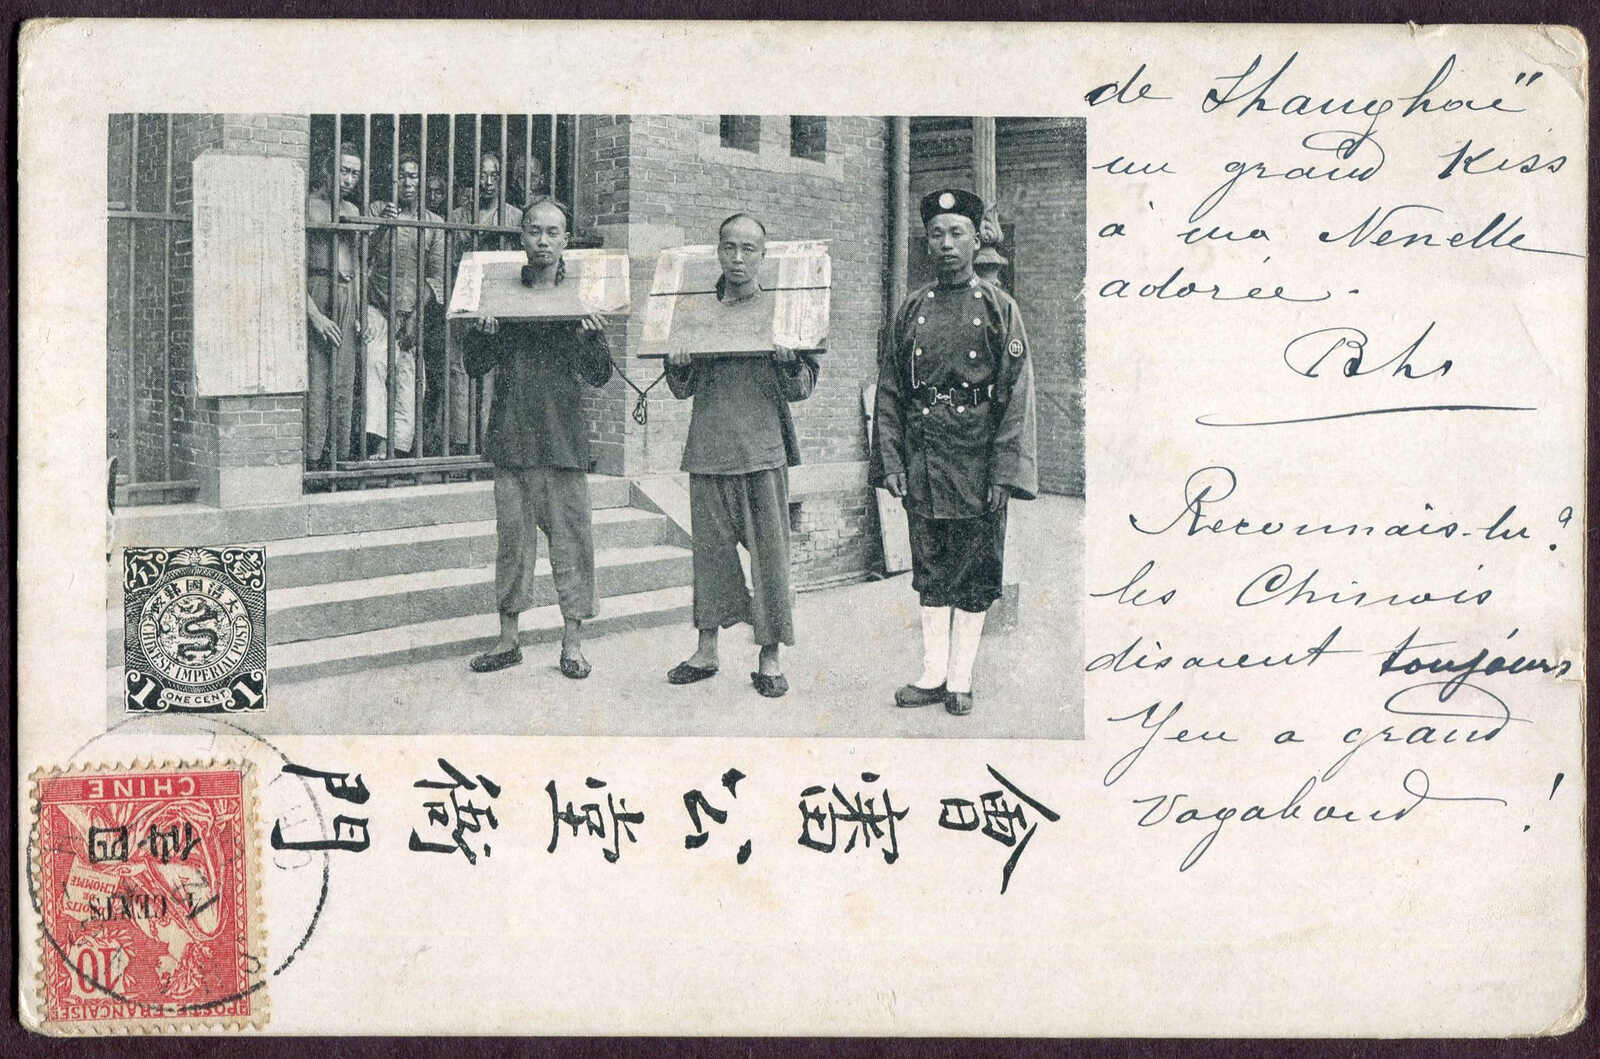 de Shanghaï
un grand Kiss
à ma Nenelle
adorée.
Reconnais-tu?
les Chinois
disaient toujours
Yen a grand
Vagabond !
壹分
大清國郵政
CHINESE IMPERIAL POST
1 ONE CENT 1
會審公堂衙門
CHINE
四仙
4 CENTS
DROITS DE L'HOMME
10
POSTE FRANÇAISE